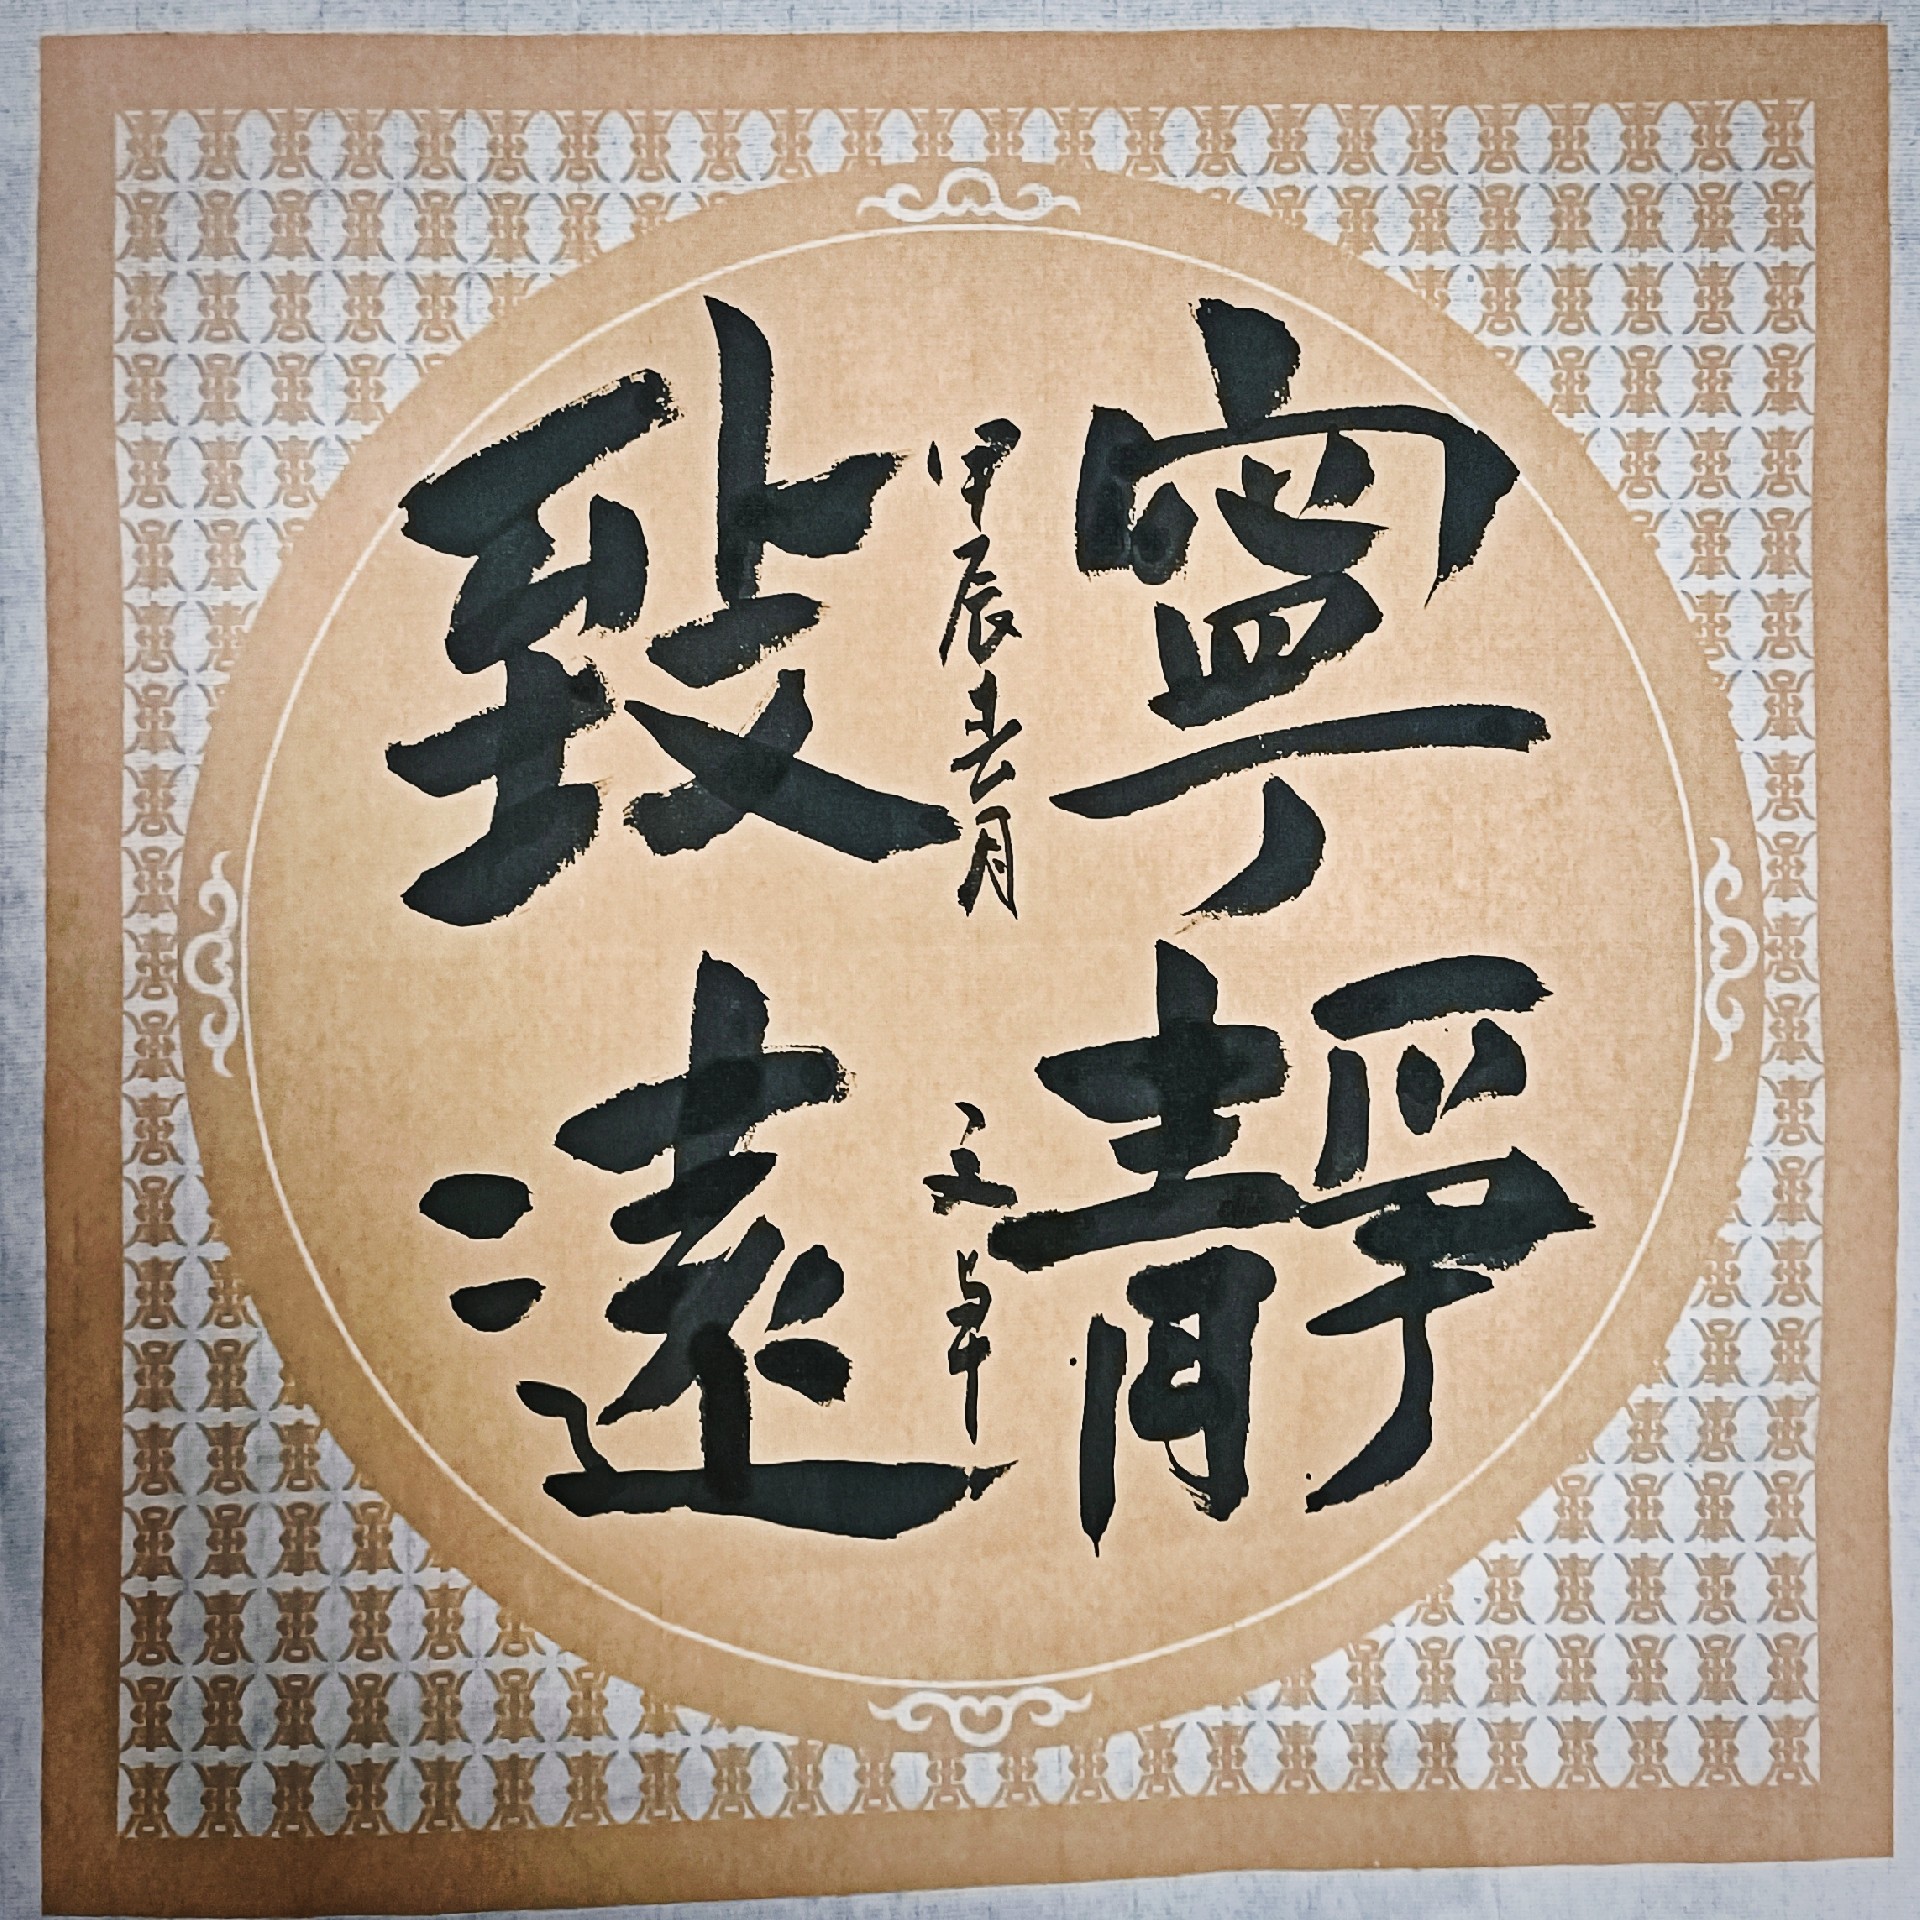 寧靜
致遠
甲辰春月
文卓